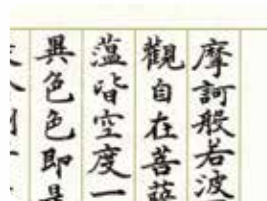 摩訶般若波
觀自在菩薩
蘊皆空度一
異色色即是